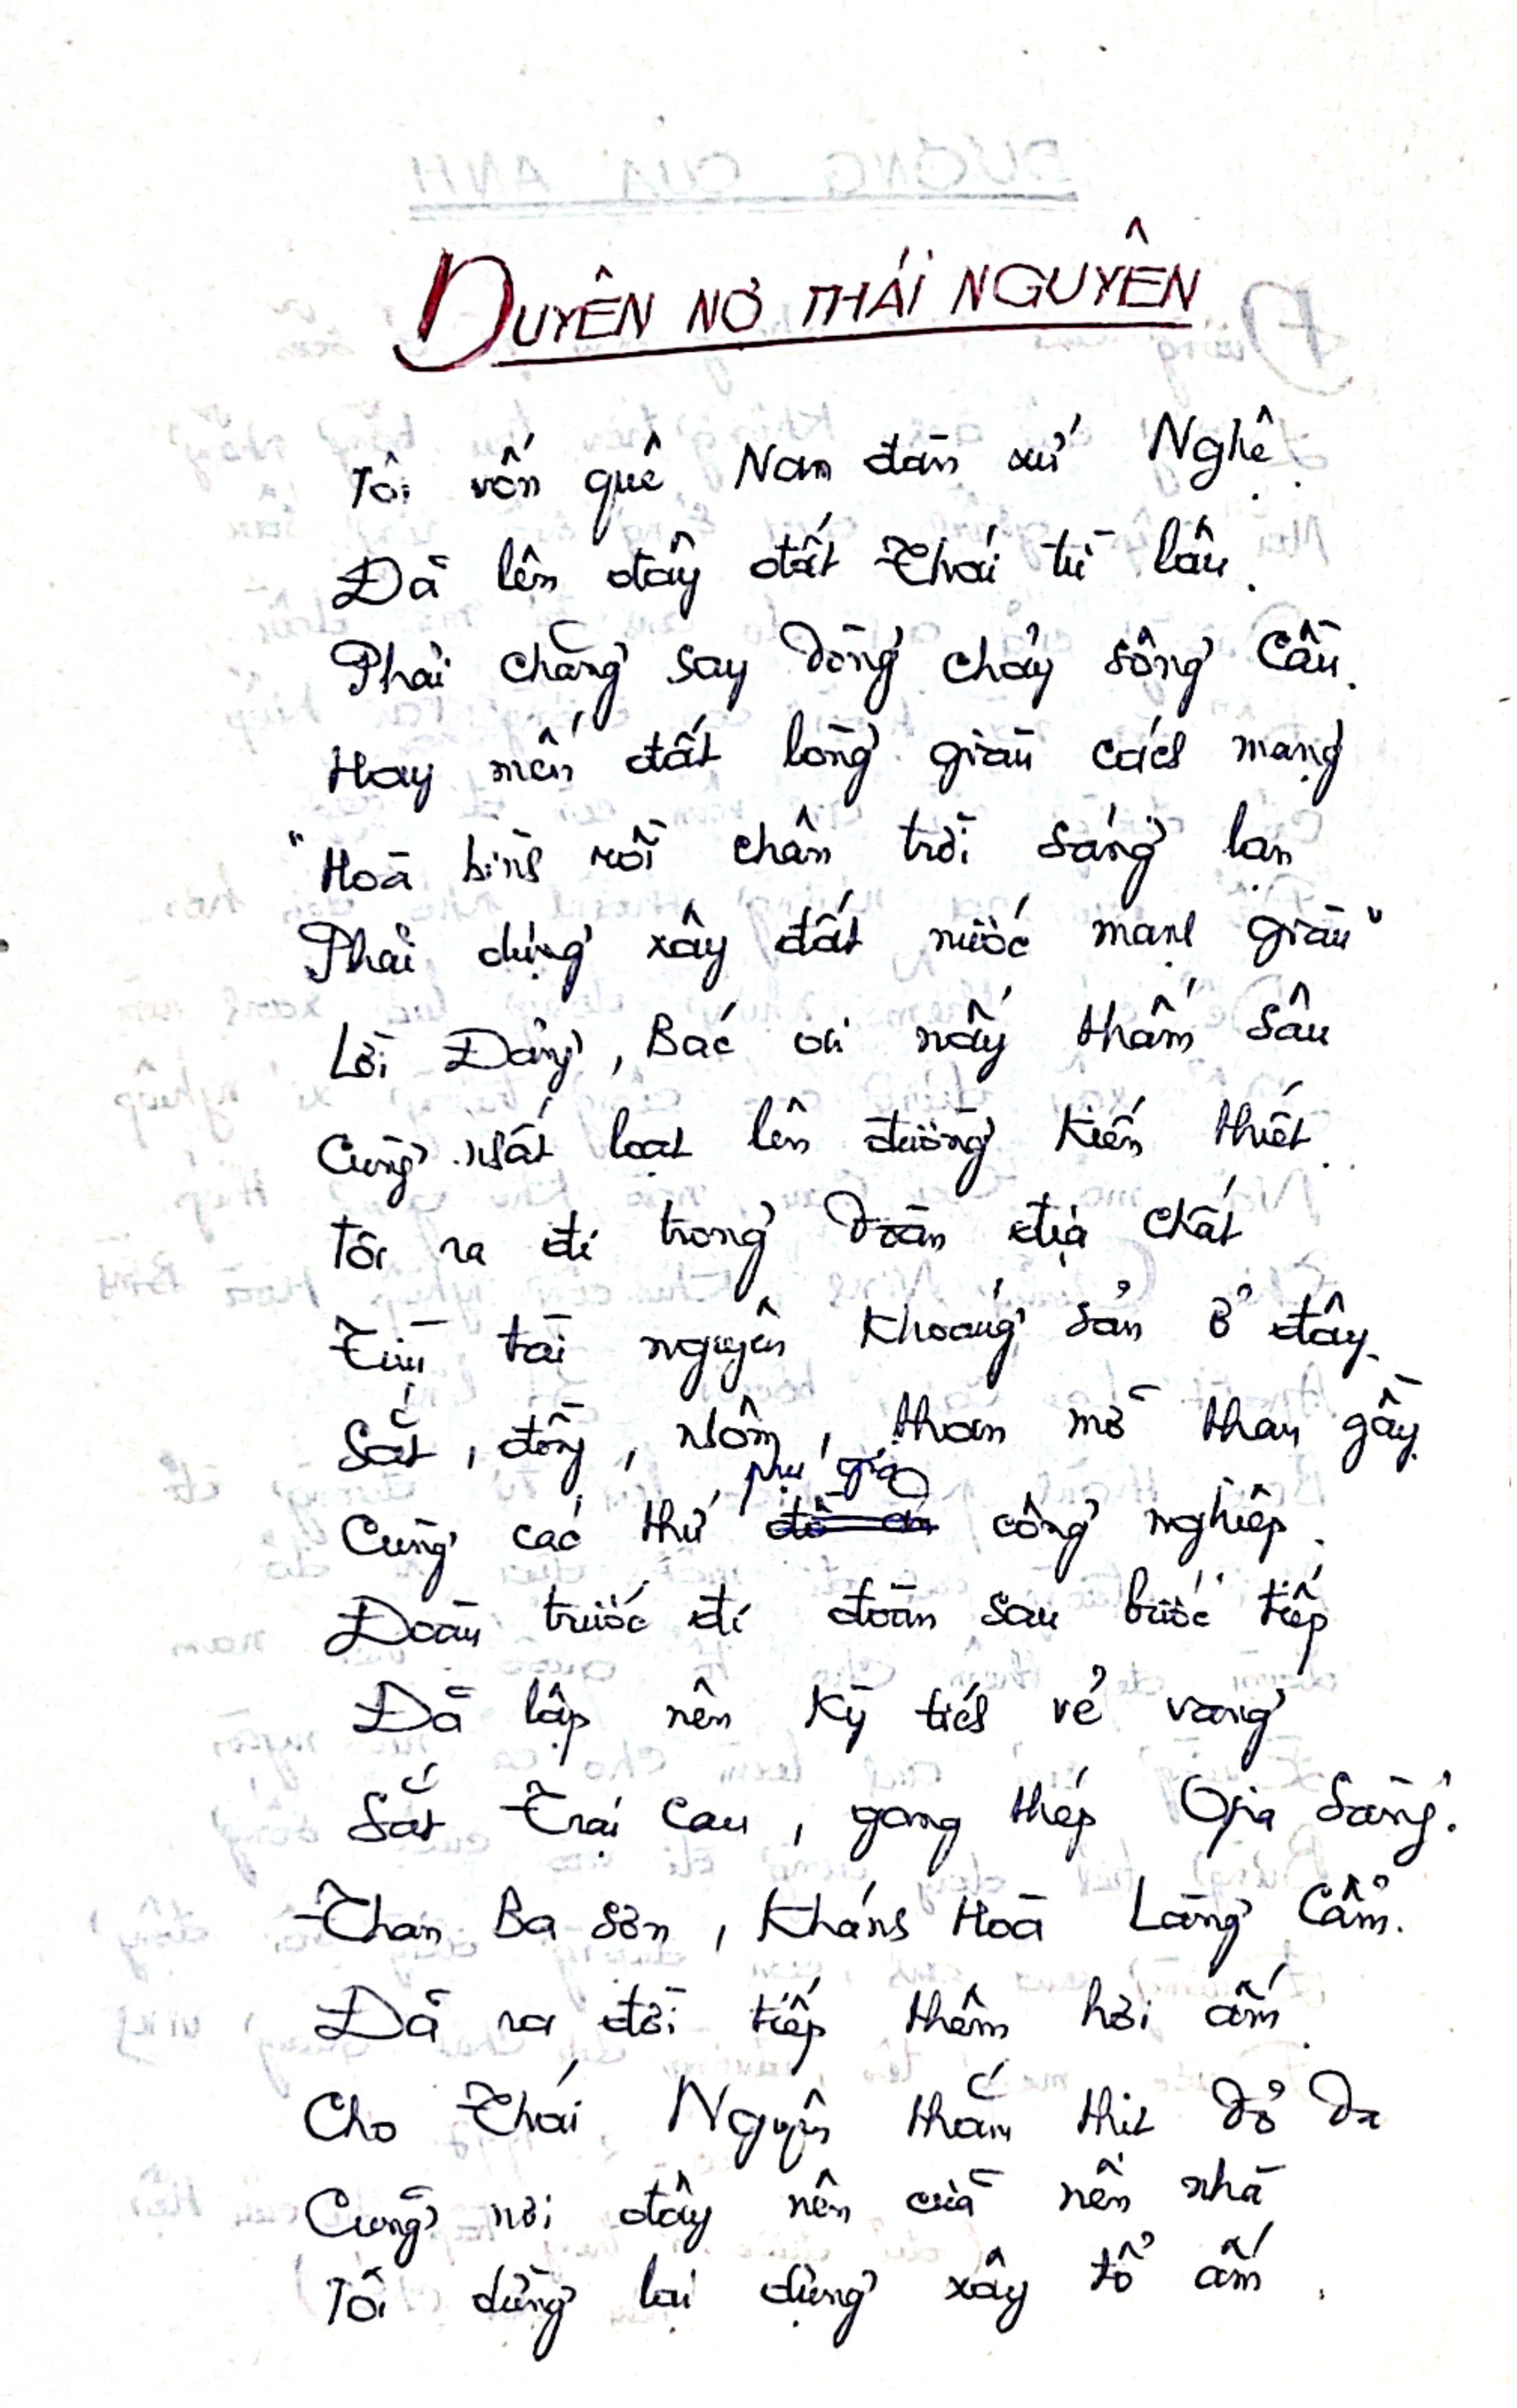 DUYÊN NỢ THÁI NGUYÊN
Tôi vốn quê Nam đàn xứ Nghệ.
Đã lên đây đất Thái từ lâu.
Phải chăng say dòng chảy sông Cầu.
Hay mến đất lòng giàu cách mạng
"Hoà bình rồi chân trời sáng lạn
Phải dựng xây đất nước mạnh giàu"
Lời Đảng, Bác ơi nấy thấm sâu
Cùng nhất loạt lên đường kiến thiết.
Tôi ra đi trong đoàn địa chất
Tìm tài nguyên khoáng sản ở đây.
Sắt, đồng, nhôm, than mỡ than gầy.
Cùng các thứ phụ gia công nghiệp.
Đoàn trước đi đoàn sau bước tiếp
Đã lập nên kỳ tích vẻ vang
Sắt Trại Cau, gang thép Gia Sàng.
Than Ba Sơn, Khánh Hoà Làng Cẩm.
Đã ra đời tiếp thêm hơi ấm.
Cho Thái Nguyên thắm thịt đỏ da
Cũng nơi đây nên cửa nên nhà
Tôi dừng lại dựng xây tổ ấm.